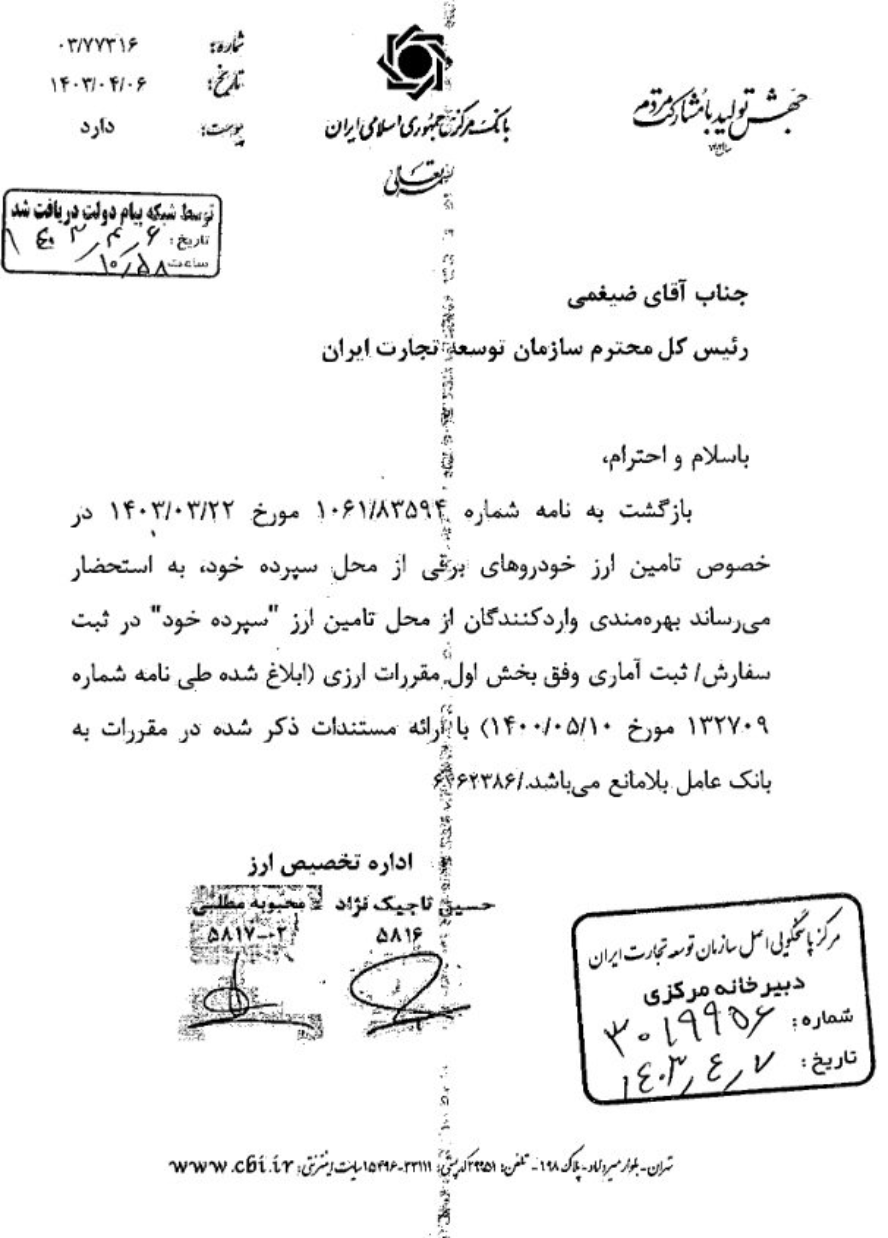 شماره: ۰۳/۷۷۳۱۶
تاریخ: ۱۴۰۳/۰۴/۰۶
پیوست: دارد
بانک مرکزی جمهوری اسلامی ایران
بسمه تعالی
جهش تولید با مشارکت مردم
توسط شبکه پیام دولت دریافت شد
تاریخ: ۱۴۰۳/۴/۶
ساعت ۱۰/۵۸
جناب آقای ضیغمی
رئیس کل محترم سازمان توسعه تجارت ایران
باسلام و احترام،
بازگشت به نامه شماره ۱۰۶۱/۸۳۵۹۴ مورخ ۱۴۰۳/۰۳/۲۲ در
خصوص تامین ارز خودروهای برقی از محل سپرده خود، به استحضار
می‌رساند بهره‌مندی واردکنندگان از محل تامین ارز "سپرده خود" در ثبت
سفارش/ ثبت آماری وفق بخش اول مقررات ارزی (ابلاغ شده طی نامه شماره
۱۳۲۷۰۹ مورخ ۱۴۰۰/۰۵/۱۰) با ارائه مستندات ذکر شده در مقررات به
بانک عامل بلامانع می‌باشد./
اداره تخصیص ارز
حسین تاجیک نژاد محبوبه مطلبی
۵۸۱۶ ۵۸۱۷-۰۲
مرکز پاسخگویی اصل سازمان توسعه تجارت ایران
دبیرخانه مرکزی
شماره: ۳۰۱۹۹۵۶
تاریخ: ۱۴۰۳/۴/۷
تهران - بلوار میرداماد - پلاک ۱۹۸ - تلفن: ۲۹۹۵۱ کدپستی: ۳۳۱۱۱-۱۵۴۹۶ سایت اینترنتی: www.cbi.ir